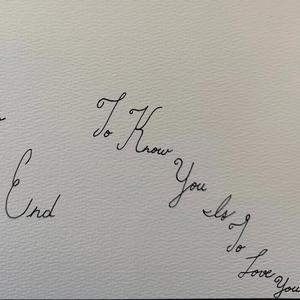 To Know You Is To Love You
End